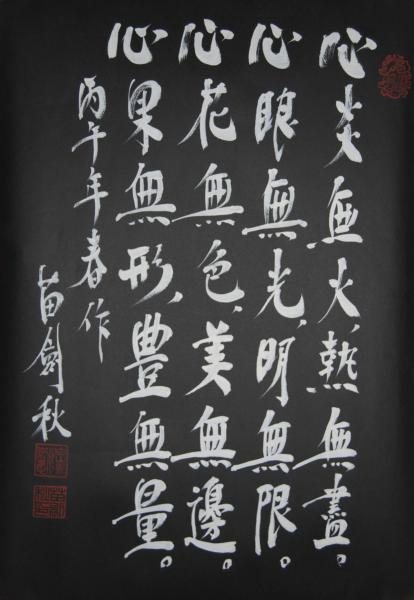 心炎無火，熱無盡。
心眼無光，明無限。
心花無色，美無邊。
心果無形，豐無量。
丙午年春作
苗劍秋